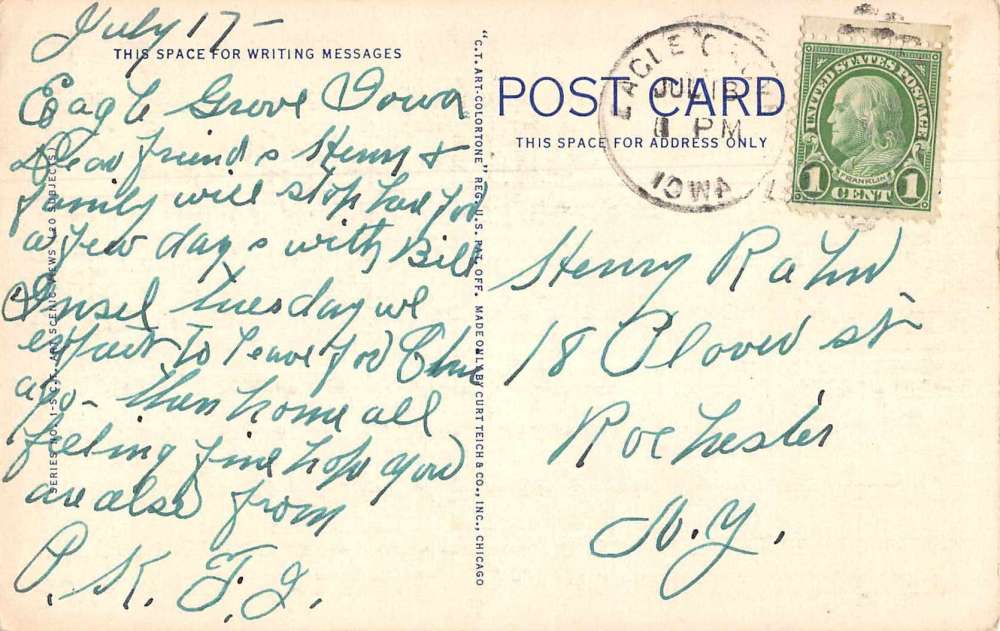 July 17-
THIS SPACE FOR WRITING MESSAGES
Eagle Grove Iowa
Dear friends Henry &
family will stop hear for
a few days with Bill
Insel tuesday we
expact to leave for Chic
ago- then home all
feeling fine hope you
are also from
P. K. F. J.
SERIES NO. 1-S.C.F. ART SCENIC VIEWS (20 SUBJECTS)
"C.T. ART-COLORTONE" REG. U.S. PAT. OFF. MADE ONLY BY CURT TEICH & CO., INC., CHICAGO
POST CARD
THIS SPACE FOR ADDRESS ONLY
EAGLE
JUL 18
PM
IOWA
UNITED STATES POSTAGE
FRANKLIN
1 CENT 1
Henry Rahn
18 Clover st
Rochester
N.Y.